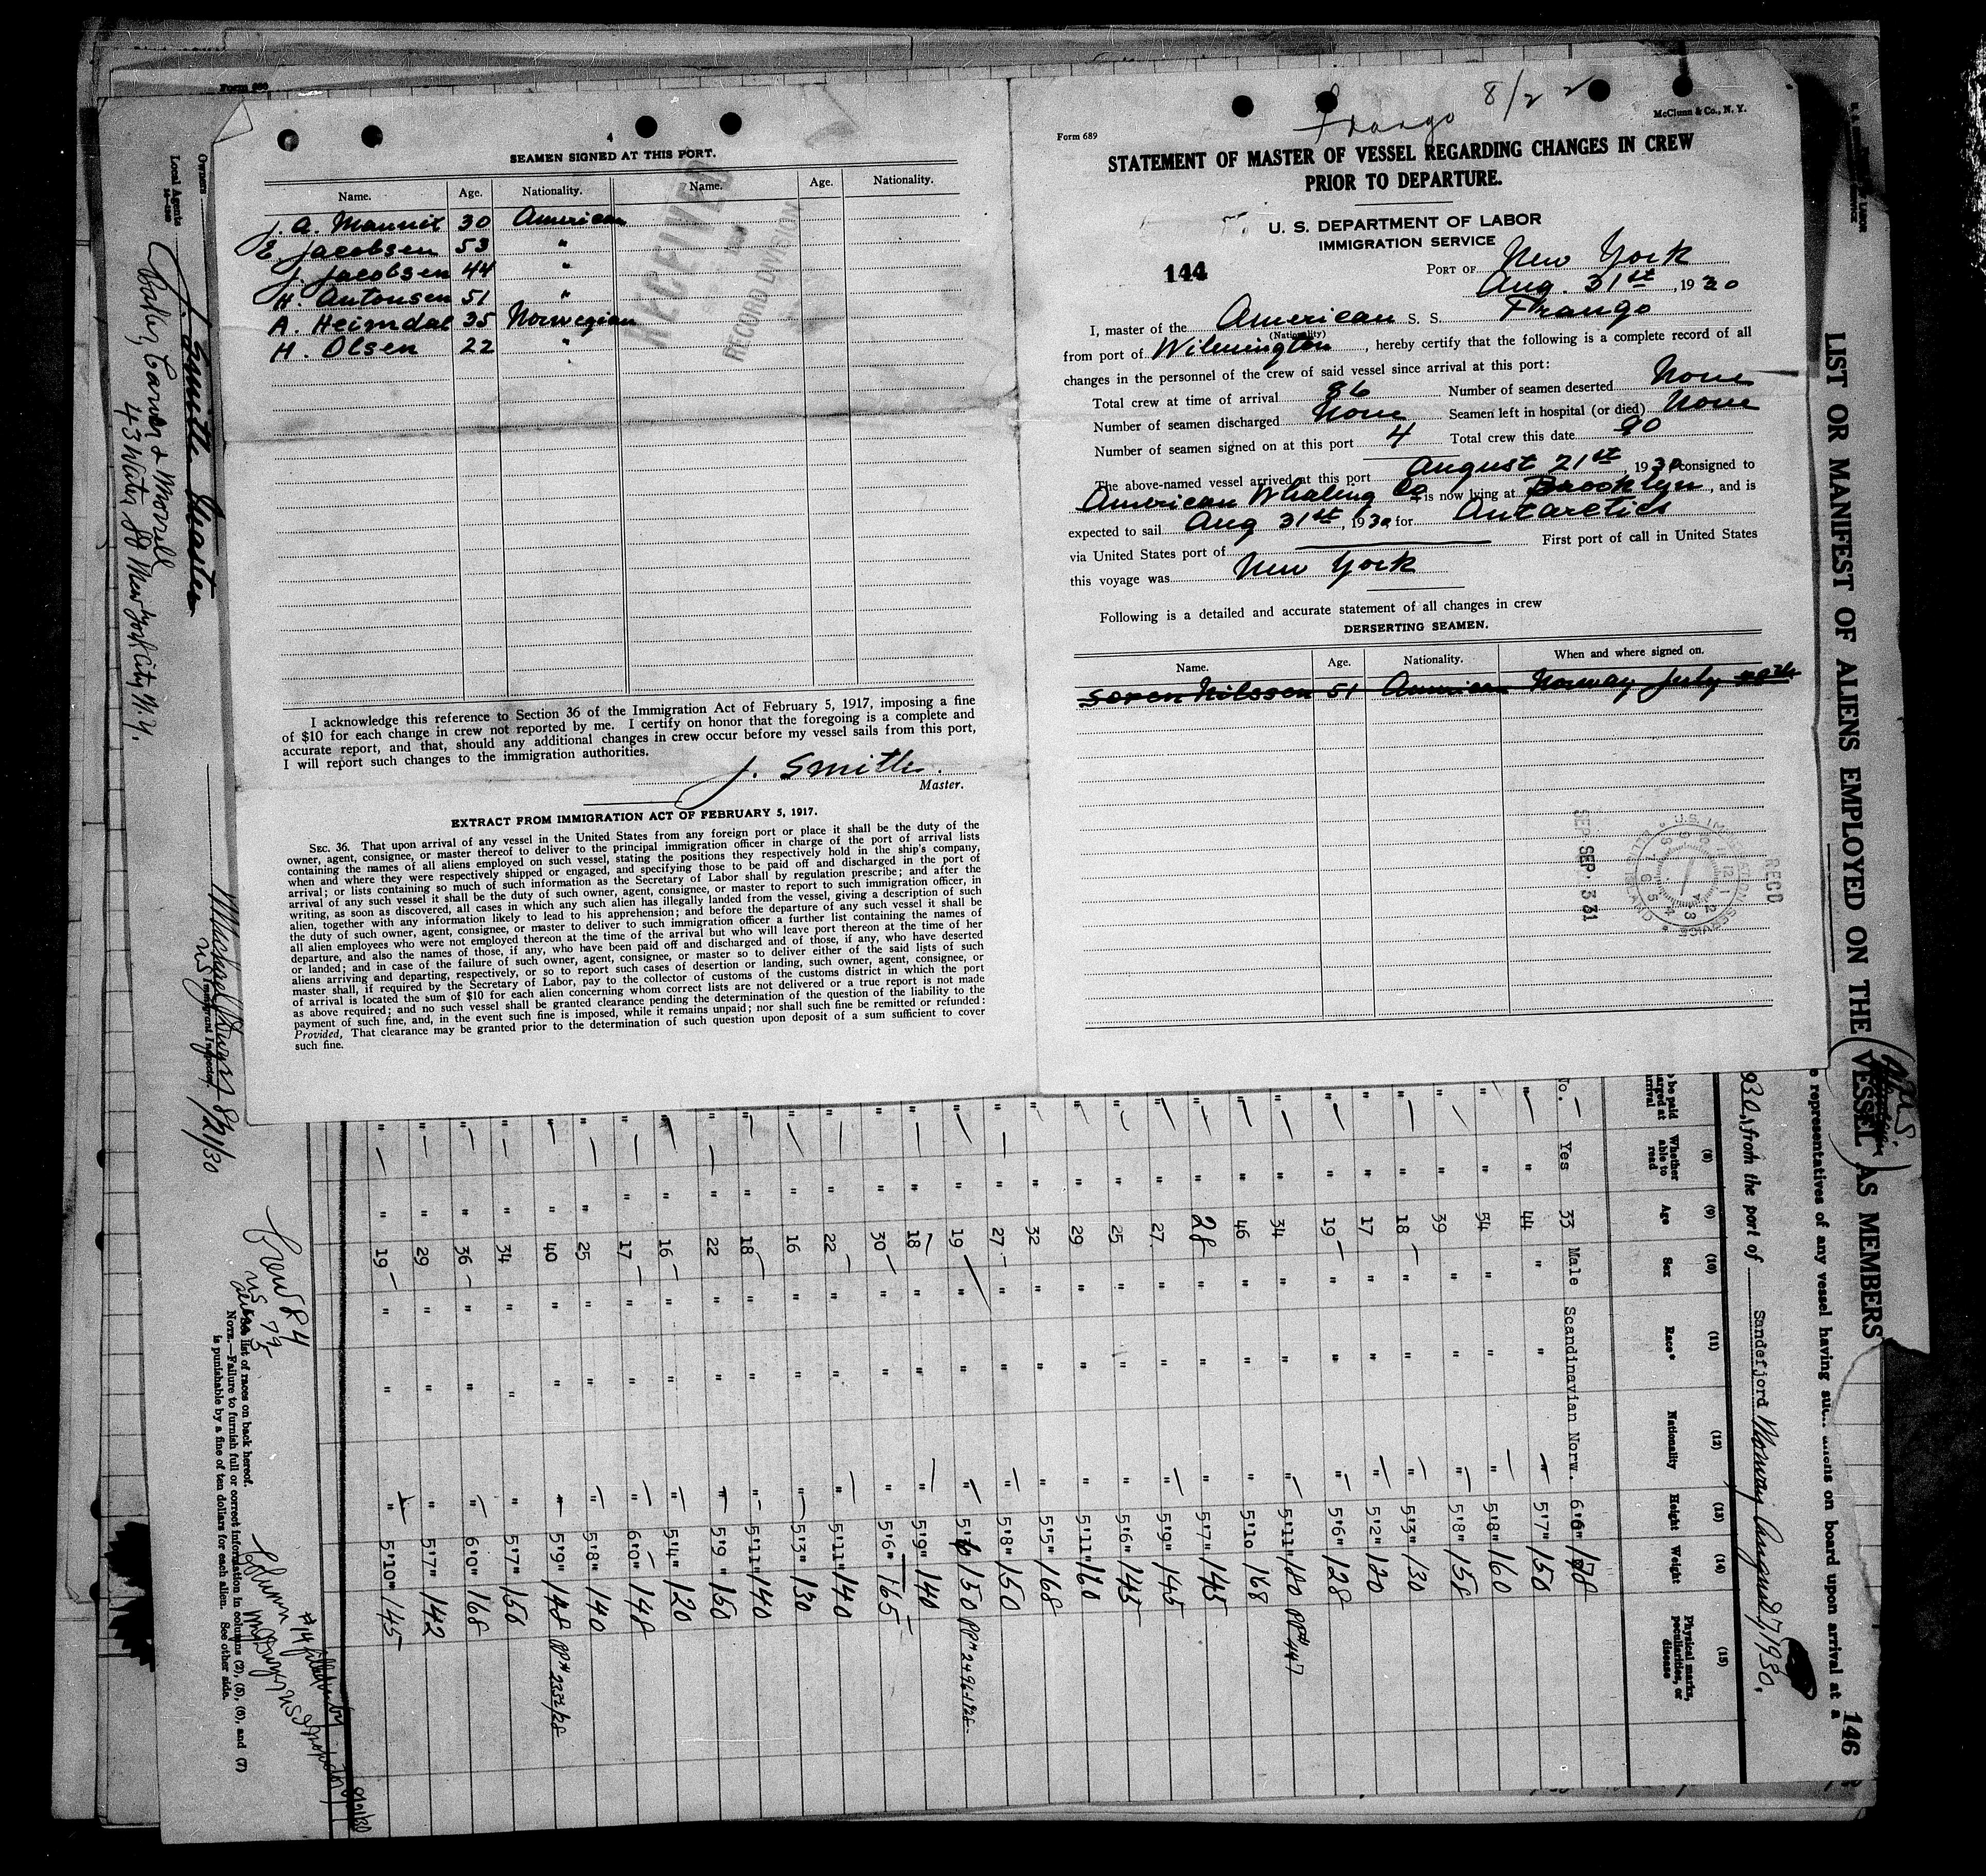 Form 689
4
SEAMEN SIGNED AT THIS PORT.
Name. Age. Nationality. Name. Age. Nationality.
J. A. 30 American
E. Jacobsen 53 "
J. Jacobsen 44 "
H. Antonsen 51 "
A. Heimdal 35 Norwegian
H. Olsen 22 "
RECEIVED
RECORD DIVISION
I acknowledge this reference to Section 36 of the Immigration Act of February 5, 1917, imposing a fine
of $10 for each change in crew not reported by me. I certify on honor that the foregoing is a complete and
accurate report, and that, should any additional changes in crew occur before my vessel sails from this port,
I will report such changes to the immigration authorities.
J. Smith.
Master.
EXTRACT FROM IMMIGRATION ACT OF FEBRUARY 5, 1917.
SEC. 36. That upon arrival of any vessel in the United States from any foreign port or place it shall be the duty of the
owner, agent, consignee, or master thereof to deliver to the principal immigration officer in charge of the port of arrival lists
containing the names of all aliens employed on such vessel, stating the positions they respectively hold in the ship's company,
when and where they were respectively shipped or engaged, and specifying those to be paid off and discharged in the port of
arrival; or lists containing so much of such information as the Secretary of Labor shall by regulation prescribe; and after the
arrival of any such vessel it shall be the duty of such owner, agent, consignee, or master to report to such immigration officer, in
writing, as soon as discovered, all cases in which any such alien has illegally landed from the vessel, giving a description of such
alien, together with any information likely to lead to his apprehension; and before the departure of any such vessel it shall be
the duty of such owner, agent, consignee, or master to deliver to such immigration officer a further list containing the names of
all alien employees who were not employed thereon at the time of the arrival but who will leave port thereon at the time of her
departure, and also the names of those, if any, who have been paid off and discharged and of those, if any, who have deserted
or landed; and in case of the failure of such owner, agent, consignee, or master so to deliver either of the said lists of such
aliens arriving and departing, respectively, or so to report such cases of desertion or landing, such owner, agent, consignee, or
master shall, if required by the Secretary of Labor, pay to the collector of customs of the customs district in which the port
of arrival is located the sum of $10 for each alien concerning whom correct lists are not delivered or a true report is not made
as above required; and no such vessel shall be granted clearance pending the determination of the question of the liability to the
payment of such fine, and, in the event such fine is imposed, while it remains unpaid; nor shall such fine be remitted or refunded:
Provided, That clearance may be granted prior to the determination of such question upon deposit of a sum sufficient to cover
such fine.
Frango 8/22
McClunn & Co., N. Y.
STATEMENT OF MASTER OF VESSEL REGARDING CHANGES IN CREW
PRIOR TO DEPARTURE.
U. S. DEPARTMENT OF LABOR
IMMIGRATION SERVICE
144
PORT OF New York
Aug. 31st, 1930
I, master of the American S. S. Frango
(Nationality)
from port of Wilmington, hereby certify that the following is a complete record of all
changes in the personnel of the crew of said vessel since arrival at this port:
Total crew at time of arrival 86 Number of seamen deserted None
Number of seamen discharged None Seamen left in hospital (or died) None
Number of seamen signed on at this port 4 Total crew this date 90
The above-named vessel arrived at this port August 21st, 1930, consigned to
American Whaling Co is now lying at Brooklyn, and is
expected to sail Aug 31st, 1930 for Antarctics
via United States port of First port of call in United States
this voyage was New York
Following is a detailed and accurate statement of all changes in crew
DERSERTING SEAMEN.
Name. Age. Nationality. When and where signed on.
Soren Nilssen 51 American Norway July 20th
SEP. 3 31
U.S. IMMIGRATION SERVICE
ELLIS ISLAND
RECD
LIST OR MANIFEST OF ALIENS EMPLOYED ON THE VESSEL AS MEMBERS
146
representatives of any vessel having such aliens on board upon arrival at a
930, from the port of Sandefjord Norway August 7, 1930,
(8) Whether able to read
(9) Age
(10) Sex
(11) Race*
(12) Nationality
(13) Height
(14) Weight
(15) Physical marks, peculiarities, or disease
No. Yes 33 Male Scandinavian Norw. 6'0" 178
" 44 " " " 5'7" 150
" 54 " " " 5'8" 160
" 39 " " " 5'8" 158
" 18 " " " 5'3" 130
" 17 " " " 5'2" 120
" 19 " " " 5'6" 128
" 34 " " " 5'11" 180
" 46 " " " 5'10 168
" 28 " " " 5'7" 145
" 27 " " " 5'9" 145
" 25 " " " 5'6" 145
" 29 " " " 5'11" 160
" 32 " " " 5'5" 168
" 27 " " " 5'8" 150
" 19 " " " 150
" 18 " " " 5'9" 140
" 30 " " " 5'6" 165
" 22 " " " 5'11" 140
" 16 " " " 5'3" 130
" 18 " " " 5'11" 140
" 22 " " " 5'9" 150
" 16 " " " 5'4" 120
" 17 " " " 6'0" 148
" 25 " " " 5'8" 140
" 40 " " " 5'9" 148
" 34 " " " 5'7" 150
" 36 " " " 6'0" 168
" 29 " " " 5'7" 142
" 19 " " " 5'10" 145
J. Smith Master
Owners
Local Agents
Barber, Carver & Morrell
43 Water St New York City N.Y.
Immigrant Inspector.
8/21/30
Crew 84
US 79
list of races on back hereof.
NOTE.—Failure to furnish full or correct information in columns (2), (5), (6), and (7)
is punishable by a fine of ten dollars for each alien. See other side.